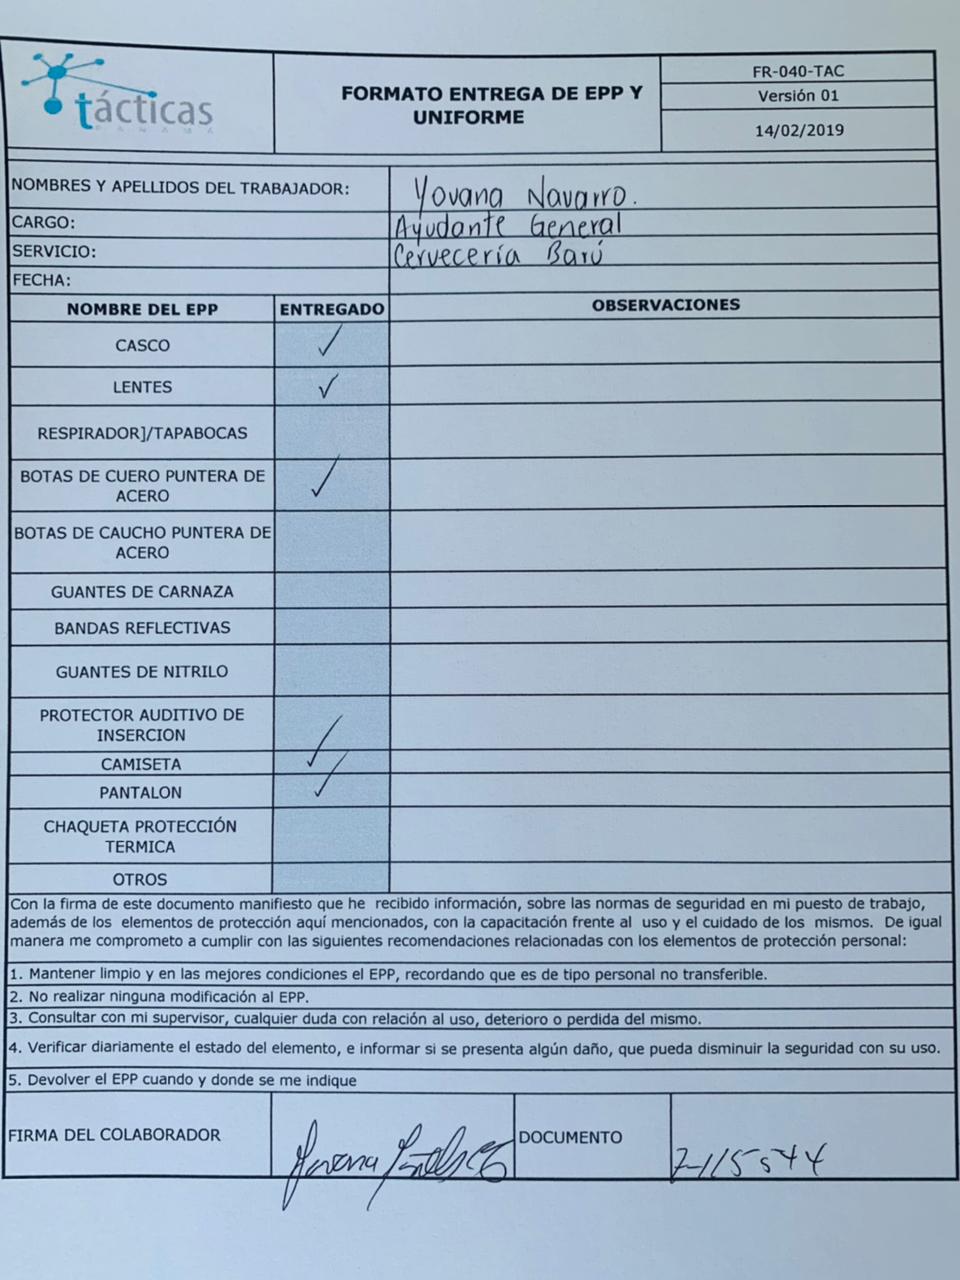 tácticas
PANAMÁ
FORMATO ENTREGA DE EPP Y
UNIFORME
FR-040-TAC
Versión 01
14/02/2019
NOMBRES Y APELLIDOS DEL TRABAJADOR: Yovana Navarro.
CARGO: Ayudante General
SERVICIO: Cervecería Barú
FECHA:
NOMBRE DEL EPP ENTREGADO OBSERVACIONES
CASCO ✓
LENTES ✓
RESPIRADOR]/TAPABOCAS
BOTAS DE CUERO PUNTERA DE
ACERO ✓
BOTAS DE CAUCHO PUNTERA DE
ACERO
GUANTES DE CARNAZA
BANDAS REFLECTIVAS
GUANTES DE NITRILO
PROTECTOR AUDITIVO DE
INSERCION
CAMISETA ✓
PANTALON ✓
CHAQUETA PROTECCIÓN
TERMICA
OTROS
Con la firma de este documento manifiesto que he recibido información, sobre las normas de seguridad en mi puesto de trabajo,
además de los elementos de protección aquí mencionados, con la capacitación frente al uso y el cuidado de los mismos. De igual
manera me comprometo a cumplir con las siguientes recomendaciones relacionadas con los elementos de protección personal:
1. Mantener limpio y en las mejores condiciones el EPP, recordando que es de tipo personal no transferible.
2. No realizar ninguna modificación al EPP.
3. Consultar con mi supervisor, cualquier duda con relación al uso, deterioro o perdida del mismo.
4. Verificar diariamente el estado del elemento, e informar si se presenta algún daño, que pueda disminuir la seguridad con su uso.
5. Devolver el EPP cuando y donde se me indique
FIRMA DEL COLABORADOR DOCUMENTO